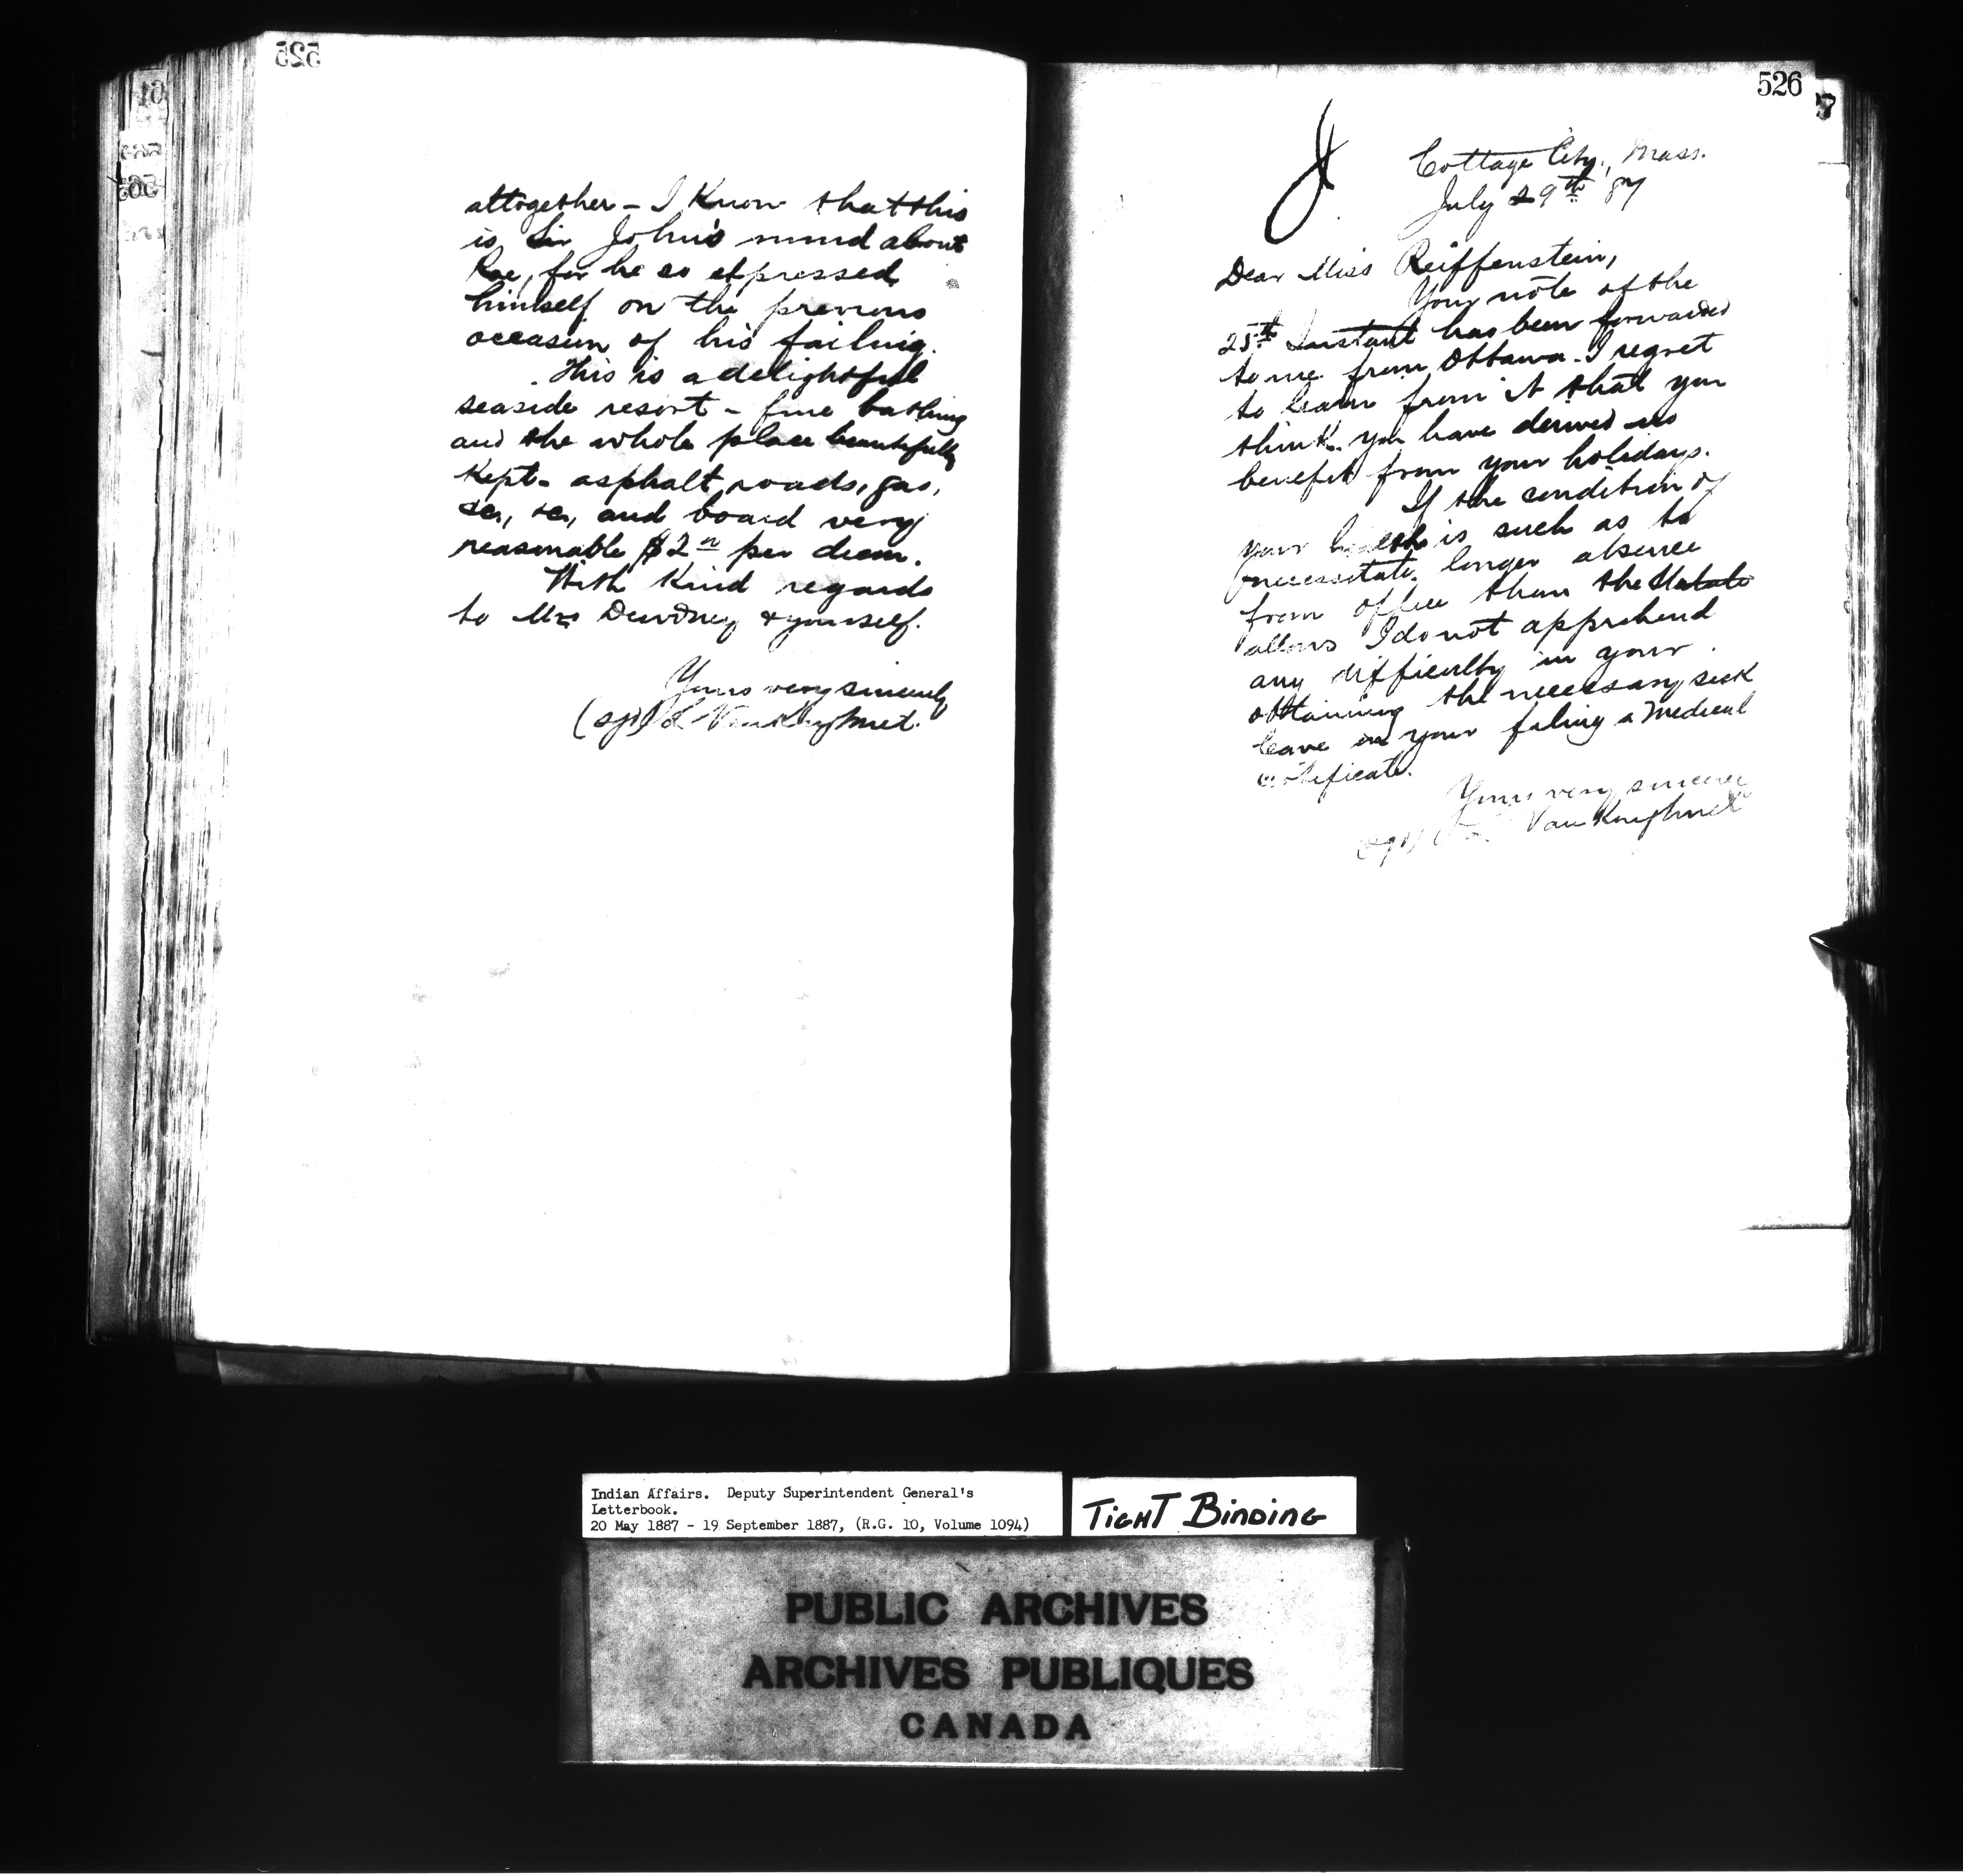 525
altogether – I Know that this
is Sir John's mind about
Rae, for he so expressed
himself on the previous
occasion of his failing.
This is a delightful
seaside resort – fine bathing
and the whole place beautifully
Kept – asphalt roads, gas,
&c, &c, and board very
reasonable $2 per diem.
With Kind regards
to Mrs Dewdney & yourself.
Yours very sincerely
(sgd) L VanKoughnet.
526
Cottage City, Mass.
July 29th 87
Dear Miss Reiffenstein,
Your note of the
25th Instant has been forwarded
to me from Ottawa. I regret
to learn from it that you
think you have derived no
benefit from your holidays.
If the condition of
your health is such as to
necessitate longer absence
from office than the Statute
allows I do not apprehend
any difficulty in your
obtaining the necessary sick
leave on your filing a Medical
certificate.
Yours very sincerely
(sgd) L VanKoughnet
Indian Affairs. Deputy Superintendent General's
Letterbook.
20 May 1887 - 19 September 1887, (R.G. 10, Volume 1094)
TIGHT BINDING
PUBLIC ARCHIVES
ARCHIVES PUBLIQUES
CANADA